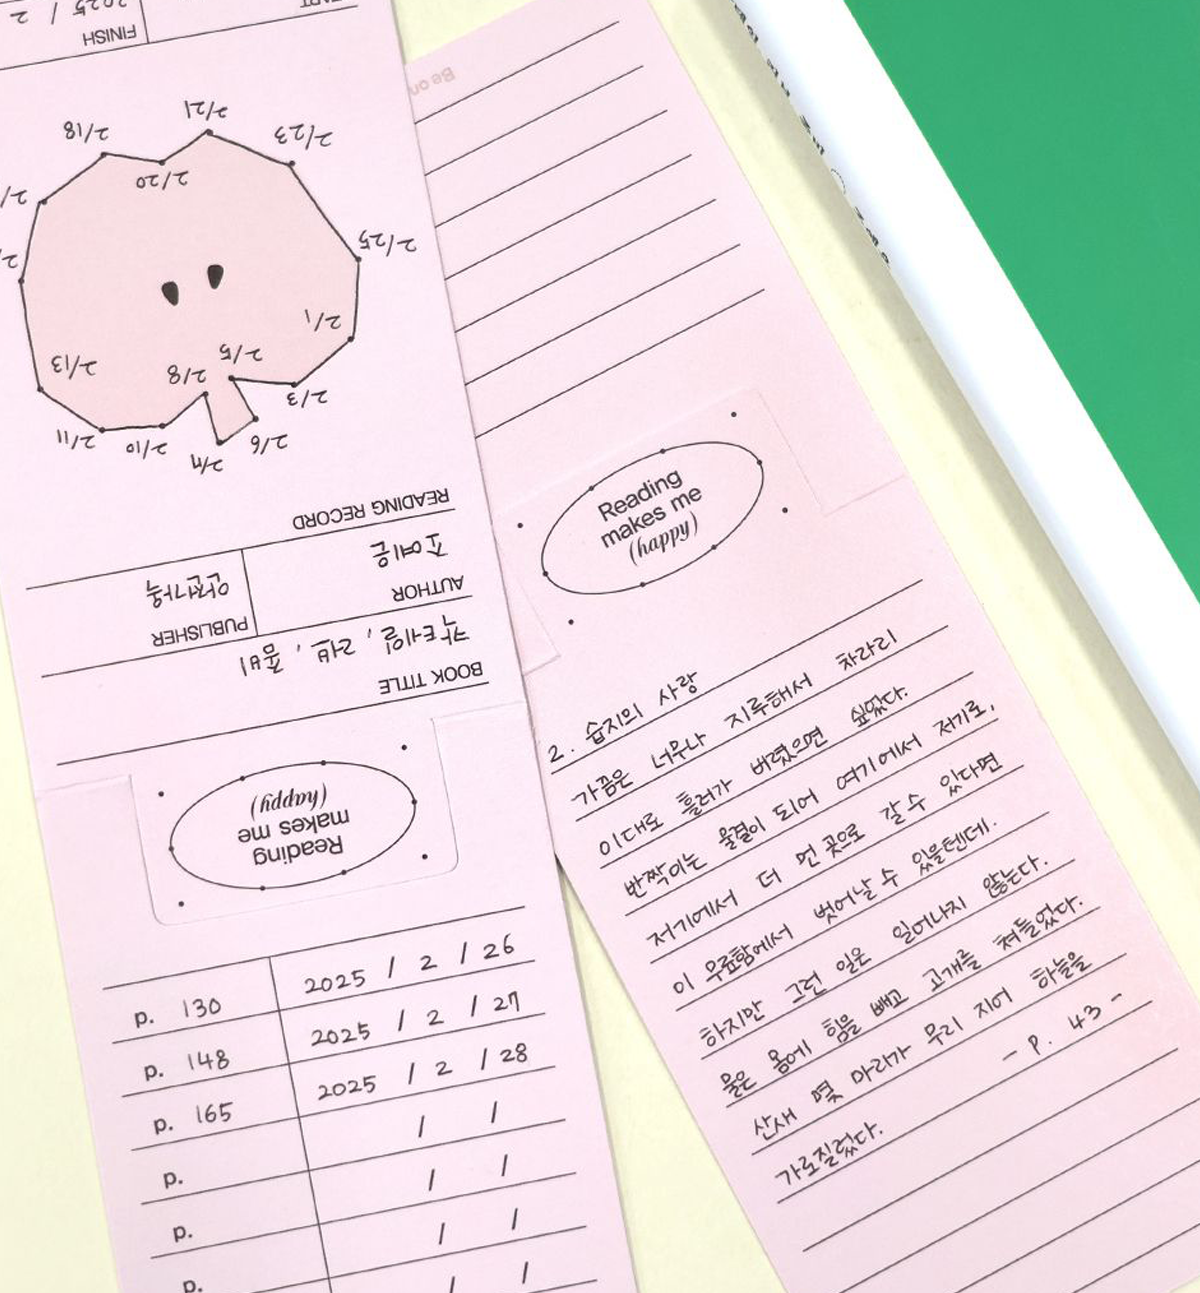 2025 / 2
FINISH
2/21
2/18
2/23
2/20
2/25
2/1
2/5
2/13
2/8
2/3
2/11
2/10
2/7
2/6
READING RECORD
조예은
안전가옥
AUTHOR
PUBLISHER
칵테일, 러브, 좀비
BOOK TITLE
Reading
makes me
(happy)
p. 130 2025 / 2 / 26
p. 148 2025 / 2 / 27
p. 165 2025 / 2 / 28
p. / /
p. / /
p. / /
Reading
makes me
(happy)
2. 습지의 사랑
가끔은 너무나 지루해서 차라리
이대로 흘러가 버렸으면 싶었다.
반짝이는 물결이 되어 여기에서 저기로,
저기에서 더 먼 곳으로 갈 수 있다면
이 무료함에서 벗어날 수 있을텐데.
하지만 그런 일은 일어나지 않는다.
물은 몸에 힘을 빼고 고개를 쳐들었다.
산새 몇 마리가 무리 지어 하늘을
가로질렀다.
- p. 43 -